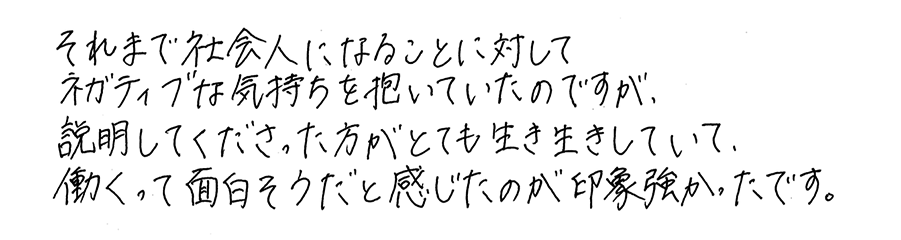 それまで社会人になることに対して
ネガティブな気持ちを抱いていたのですが、
説明してくださった方がとても生き生きしていて、
働くって面白そうだと感じたのが印象強かったです。